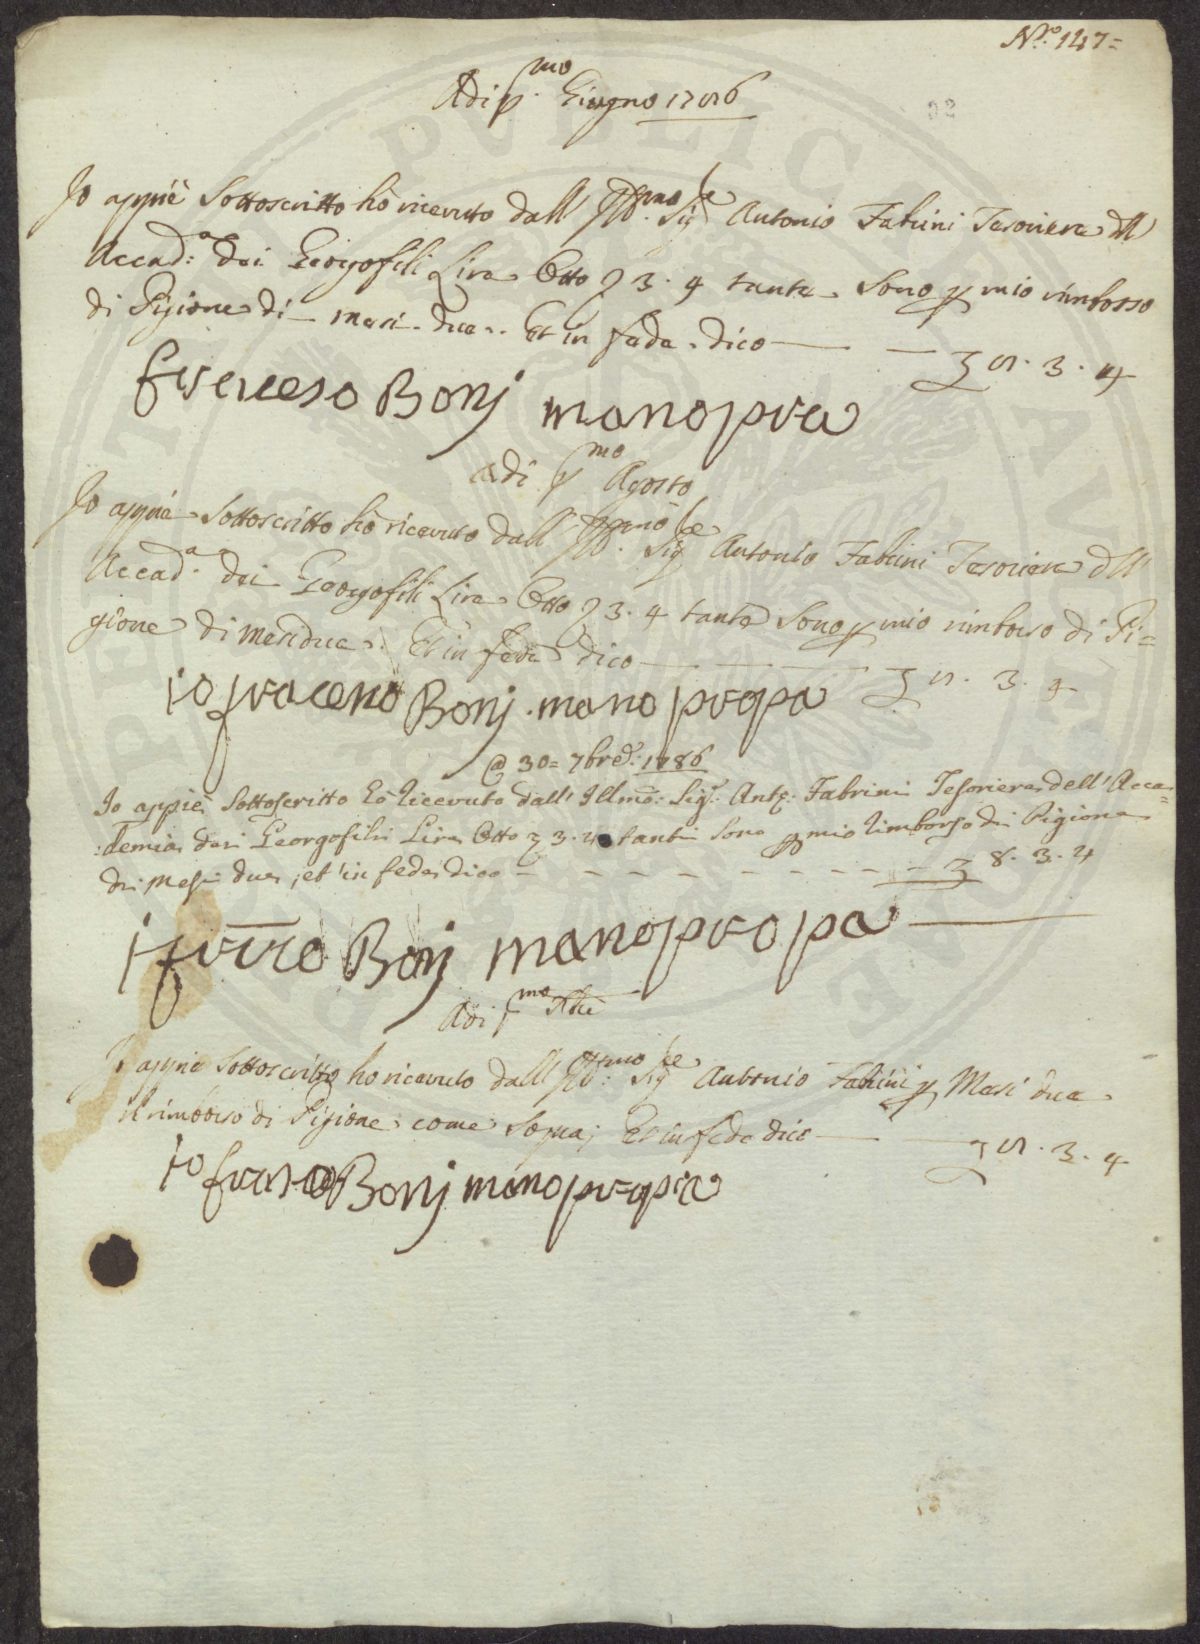 N.º 147=
Adi p.mo Giugno 1786
Io appiè Sottoscritto hò ricevuto dall Ill.mo Sig.re Antonio Fabrini Tesoriere dell
Accad.a dei Georgofili Lire Otto 3. 4 tante Sono p mio rimborso
di Pigione di mesi due. Et in fede dico — — 8. 3. 4
Bonj mano pra
adi p.mo Agosto
Io appiè Sottoscritto hò ricevuto dall Ill.mo Sig.re Antonio Fabrini Tesoriere dell
Accad.a dei Georgofili Lire Otto 3. 4 tante Sono p mio rimborso di Pi=
gione di mesi due. Et in fede dico — — — 8. 3. 4
io Bonj mano propa
@ 30= 7bre: 1786
Io appiè Sottoscritto hò ricevuto dall' Illmo: Sig.r Ant.o: Fabrini Tesoriere dell' Acca=
:demia dei Georgofili Lire Otto 3. 4 tanti Sono p mio rimborso di Pigione
di Mesi due, et in fede dico - - - - - - - - - 8. 3. 4
Bonj mano propa
Adi p.mo
Io appiè Sottoscritto ho ricevuto dall Ill.mo Sig.re Antonio Fabrini p Mesi due
il rimborso di Pigione come Sopra; Et in fede dico — — 8. 3. 4
io Bonj mano propia